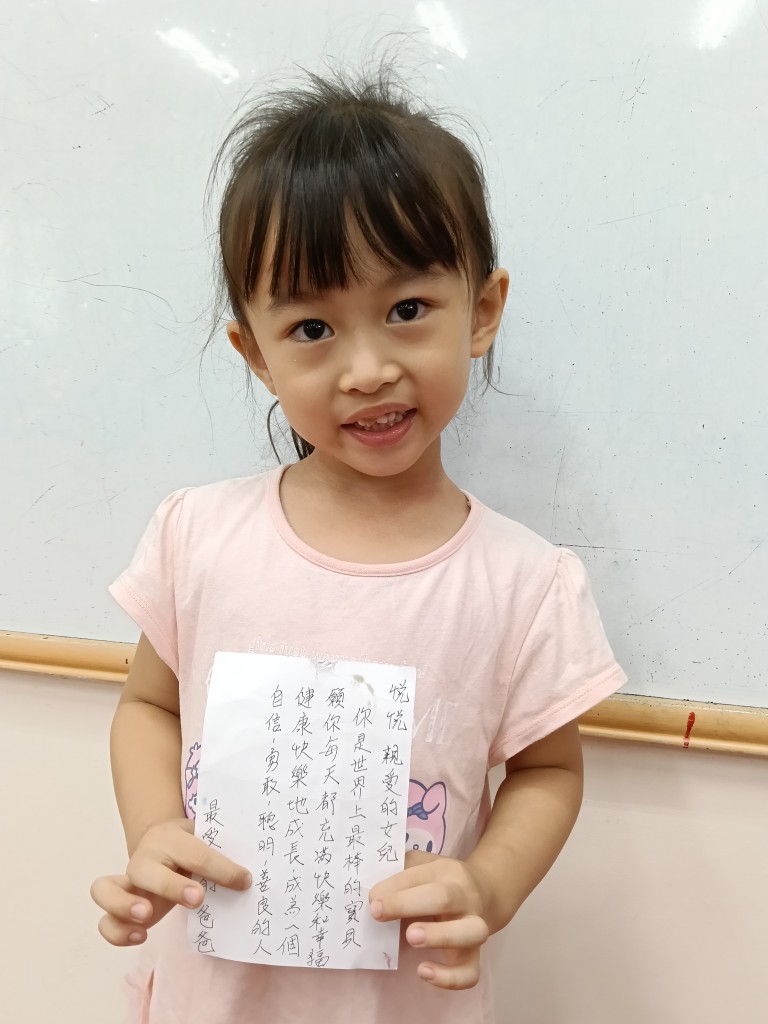 悅悅 親愛的女兒
你是世界上最棒的寶貝
願你每天都充滿快樂和幸福
健康快樂地成長,成為一個
自信,勇敢,聰明,善良的人
最愛的爸爸
ME